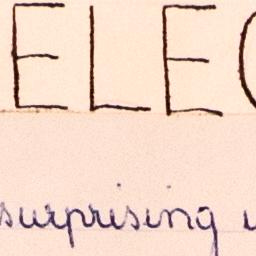 ELEC
surprising